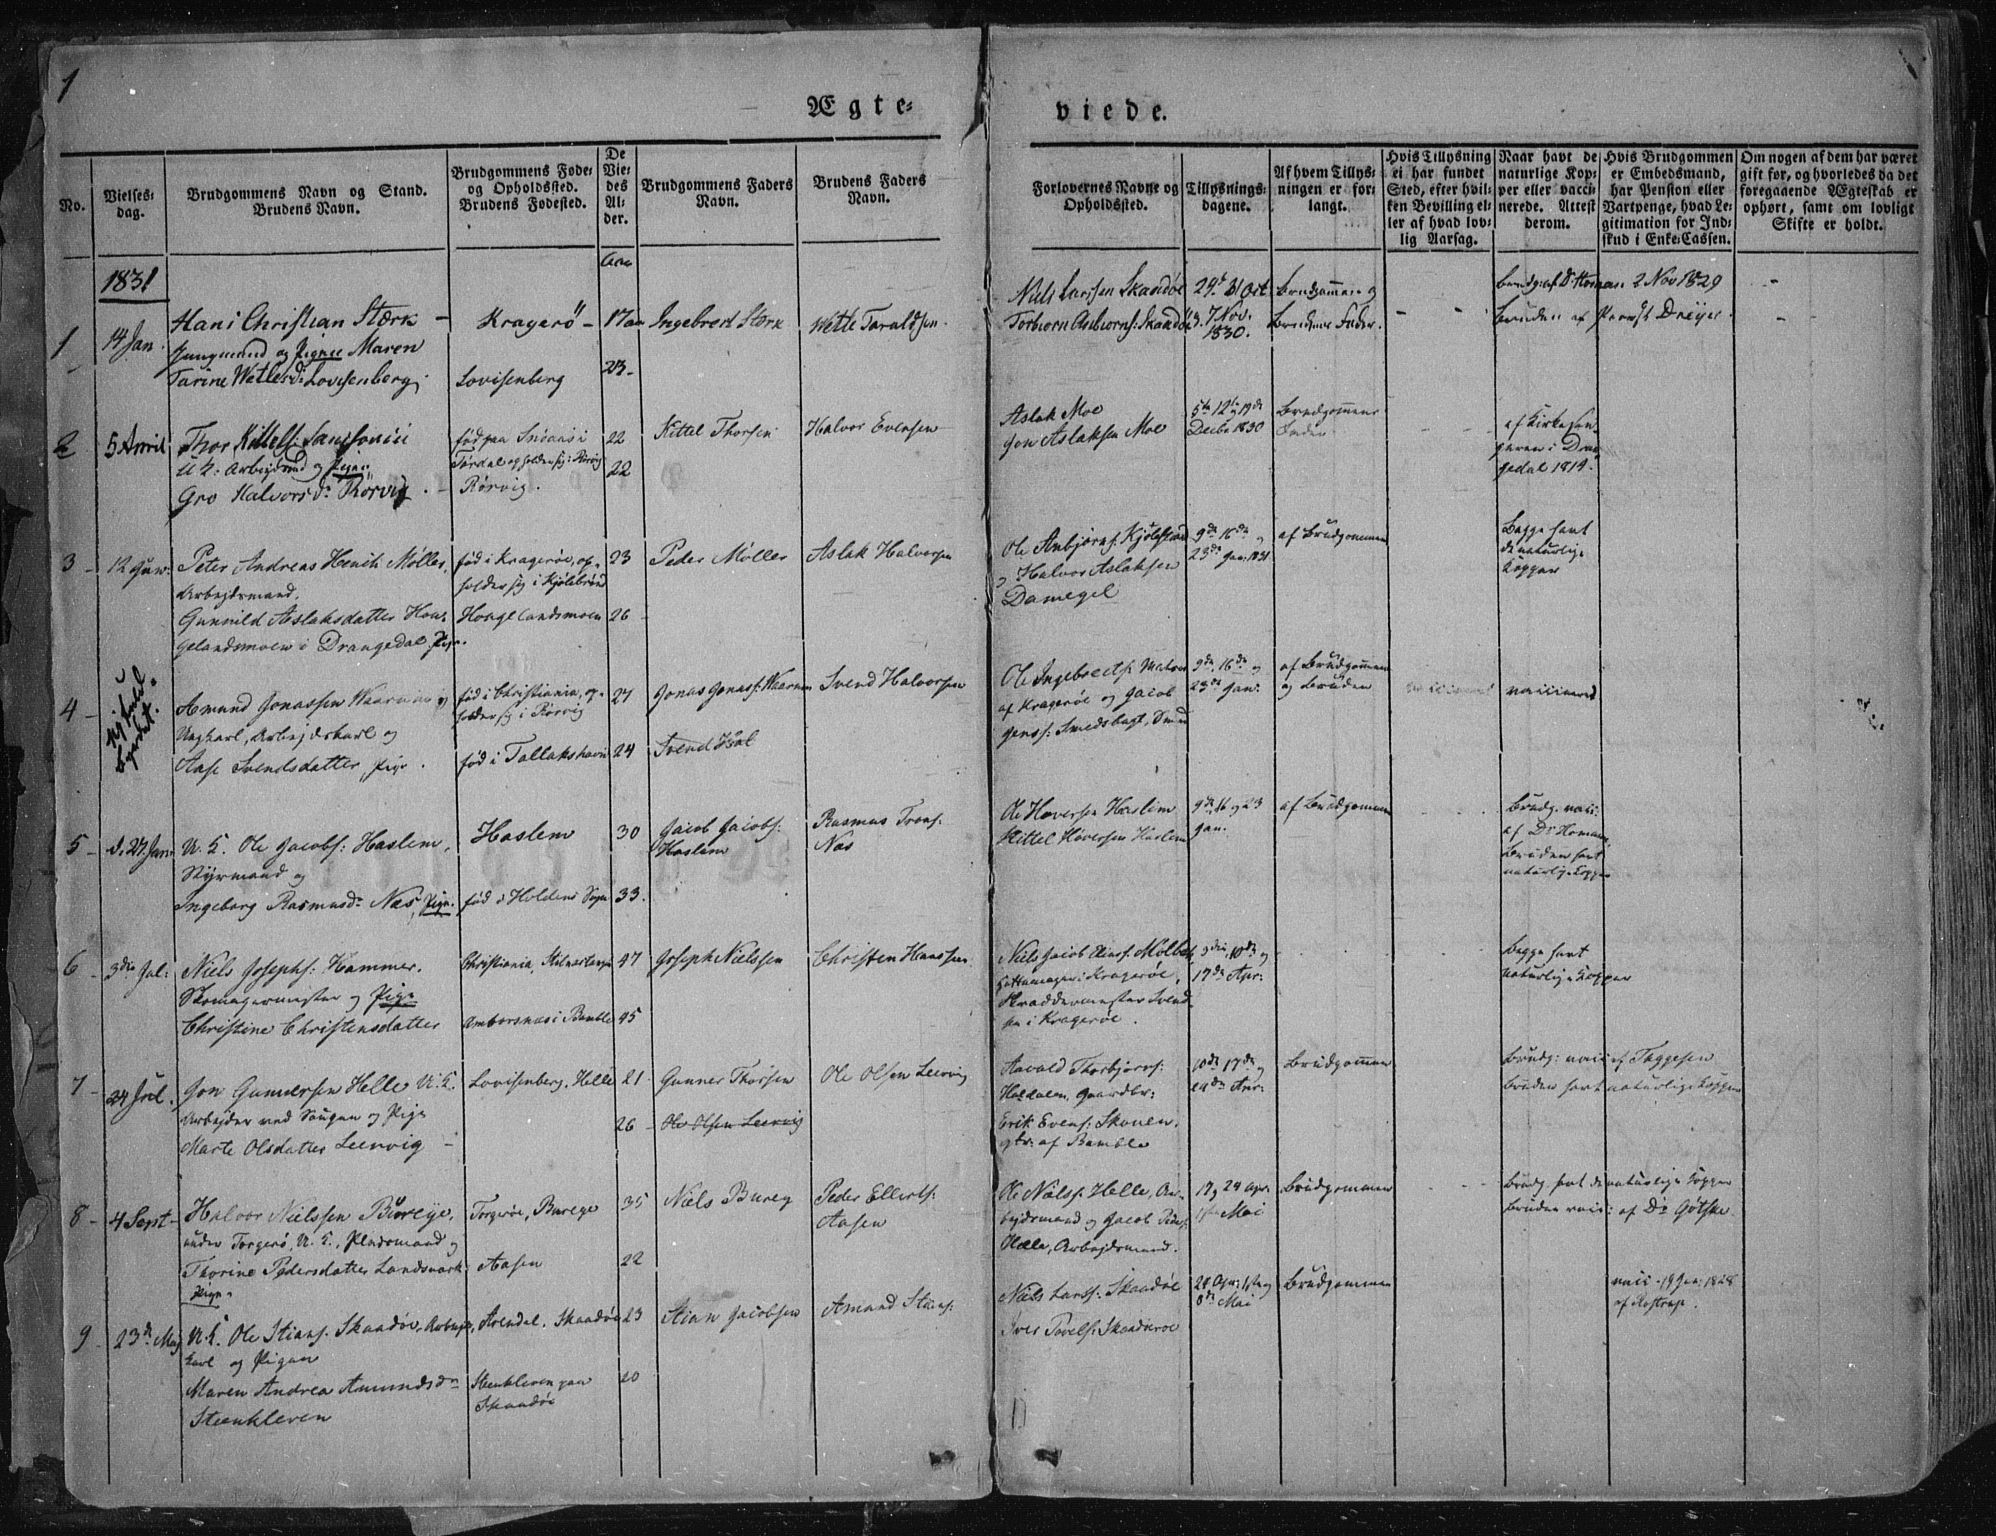 1
Ægte-
viede.
No.
Vielses-
dag.
Brudgommens Navn og Stand.
Brudens Navn.
Brudgommens Føde-
og Opholdssted.
Brudens Fødested.
De
Vie-
des
Al-
der.
Brudgommens Faders
Navn.
Brudens Faders
Navn.
Forlovernes Navne og
Opholdssted.
Tillysnings-
dagene.
Af hvem Tillys-
ningen er for-
langt.
Hvis Tillysning
ei har fundet
Sted, efter hvil-
ken Bevilling el-
ler af hvad lov-
lig Aarsag.
Naar havt de
naturlige Kop-
per eller vacci-
nerede. Attest
derom.
Hvis Brudgommen
er Embedsmand,
har Pension eller
Vartpenge, hvad Le-
gitimation for Ind-
skud i Enke-Cassen.
Om nogen af dem har været
gift før, og hvorledes da det
foregaaende Ægteskab er
ophørt, samt om lovligt
Skifte er holdt.
1831
1
14 Jan.
Hans Christian Stærk
og Pigen Maren
Tarine Wetlesd: Lovisenberg.
Kragerø
Lovisenberg
23
Ingebret Stærk
Wetle Taraldsen
Niels Larssen Skaadøe
Torbiorn Asbiorns: Skaadøe
29. 31 Oct
7 Nov.
1830.
Brudgommen og
Brudens Fader.
Brudg: af Dr Homan 2 Nov 1829
Bruden af Provst Dreyer
2
5 April
Thor Kittels:
U. K: Arbejdsmd og Pigen
Gro Halvorsdr Rørvig
fød paa
Tørdal opholder sig i Rørvig
Rørvig.
22
22
Kittel Thorsen
Halvor Evensen
Aslak Moe
Jon Aslaksen Moe
5te 12te 19de
Decbr 1830
Brudgommens
Fader
af Kirkesan-
geren i Dran-
gedal 1814.
3
12 Juni:
Peter Andreas Henrik Møller,
Arbejdsmand.
Gunnild Aslaksdatter Hou-
gelandsmoen i Drangedal, Pige.
fød i Kragerøe, op-
holder sig i Kjølebrønd
Hougelandsmoen
23
26
Peder Møller
Aslak Halvorsen
Ole Anbjørns: Kjølebrønd
og Halvor Aslaksen
Damegel
9de 16de og
23de Jan: 1831
af Brudgommen
Begge havt
de naturlige
Kopper
4
Ej bleven
Amund Jonassen Waarnæs og
Ungkarl, Arbejdskarl og
Aase Svendsdatter, Pige.
fød i Christiania, op-
holder sig i Rørvig
fød i Tallakshavn
27
24
Jonas Jonass: Waarnæs
Svend Hval
Svend Halvorsen
Ole Ingebrects:
af Kragerøe og Jacob
Jenss: Smedsbugt,
9de 16de og
23de Jan:
af Brudgommen
og Bruden
vaccineret
5
d. 27 Jan.
U. K. Ole Jacobs: Haslem,
Styrmand og
Ingeborg Rasmusdr Næs, Pige.
Haslem
fød i Holdens Sogn
30
33.
Jacob Jacobs:
Haslem
Rasmus Trons:
Næs
Ole Hoversen Haslem
Kittel Hoversen Haslem
9de 16 og 23
Jan.
af Brudgommen
Brudg. vacc:
af Dr Homan,
Bruden havt
naturlige Kopper
6
3die Jul:
Niels Josephs: Hammer.
Skomagermester og Pige
Christine Christensdatter
Christiania,
i Bamble
47
45
Joseph Nielssen
Christen Hanssen
Niels Jacob
Hattemager i Kragerøe,
Skræddermester Svend-
sen i Kragerøe.
3die, 10de og
17de Apr:
Begge havt
naturlige Kopper
7
24 Jul.
Jon Gunnersen Helle U. K.
Arbejder ved Saugen og Pige
Marte Olsdatter Leervig
Lovisenberg, Helle
21
26
Gunner Thorsen
Ole Olsen Leervig
Ole Olsen Leervig
Havold Thorbjørns:
Haldalen, Gaardbr:
Erik Evens: Skouen,
gbr: af Bamble
10de 17de og
24de Apr:
Brudgommen
Brudg: vacc af Faggesen
Bruden havt naturlige Kopper
8
4 Sept
Halvor Nielssen Bureye,
under Torgerø, U. K., Pladsmand og
Thorine Pedersdatter Landsværk
Pige
Torgerøe, Burege
Aasen
35
22
Niels Bureg
Peder Ellerts:
Aasen
Ole Nielss: Helle, Ar-
bejdsmand og Jacob Peders:
Helle, Arbejdsmand.
17 og 24 Apr:
1ste Mai
Brudgommen
Brudg. havt de naturlige Kopper
Bruden vacc: af Dr Gøtske
9
23de Maj
U. K. Ole Stians: Skaadøe, Arbejds-
karl og Pigen
Maren Andrea Amundsdr
Steenkleven
Arendal. Skaadøe
Steenkleven paa
Skaadøe
23
20
Stian Jacobsen
Amund Stians:
Niels Larss: Skaadøe
Iver Povels: Skaadøe
24 Apr: 1ste og
8de Mai
Brudgommen
vacc. 19 Jan: 1828
af Rostrup.